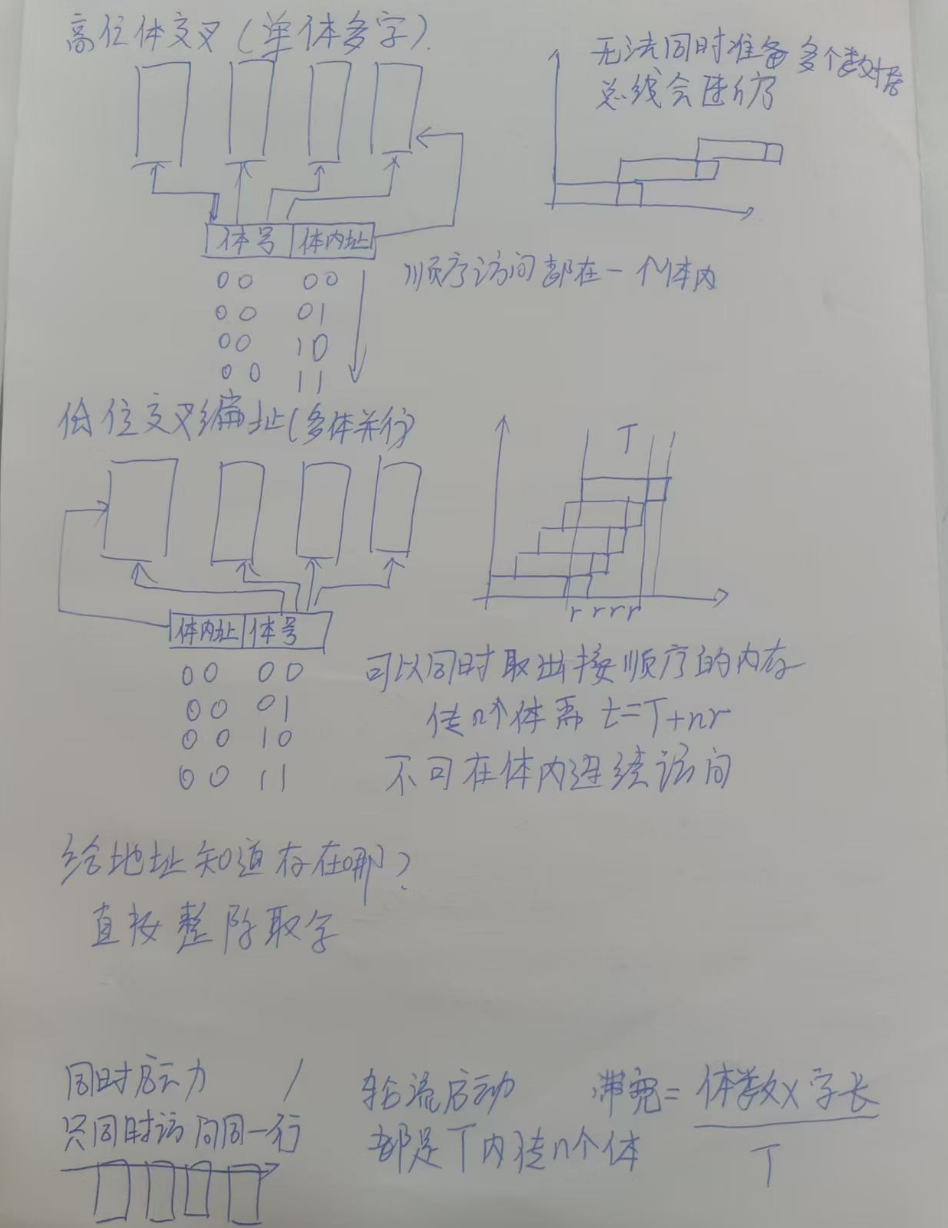 高位体交叉(单体多字)
无法同时准备多个数据
总线会
体号 体内址
00 00
00 01
00 10
00 11
顺序访问都在一个体内
低位交叉编址(多体并行)
T
r r r r
体内址 体号
00 00
00 01
00 10
00 11
可以同时取出按顺序的内存
传n个体需 t=T+nr
不可在体内连续访问
给地址知道存在哪?
直接整除取字
同时启动 /
只同时访问同一行
轮流启动
都是T内传n个体
带宽=体数×字长
T